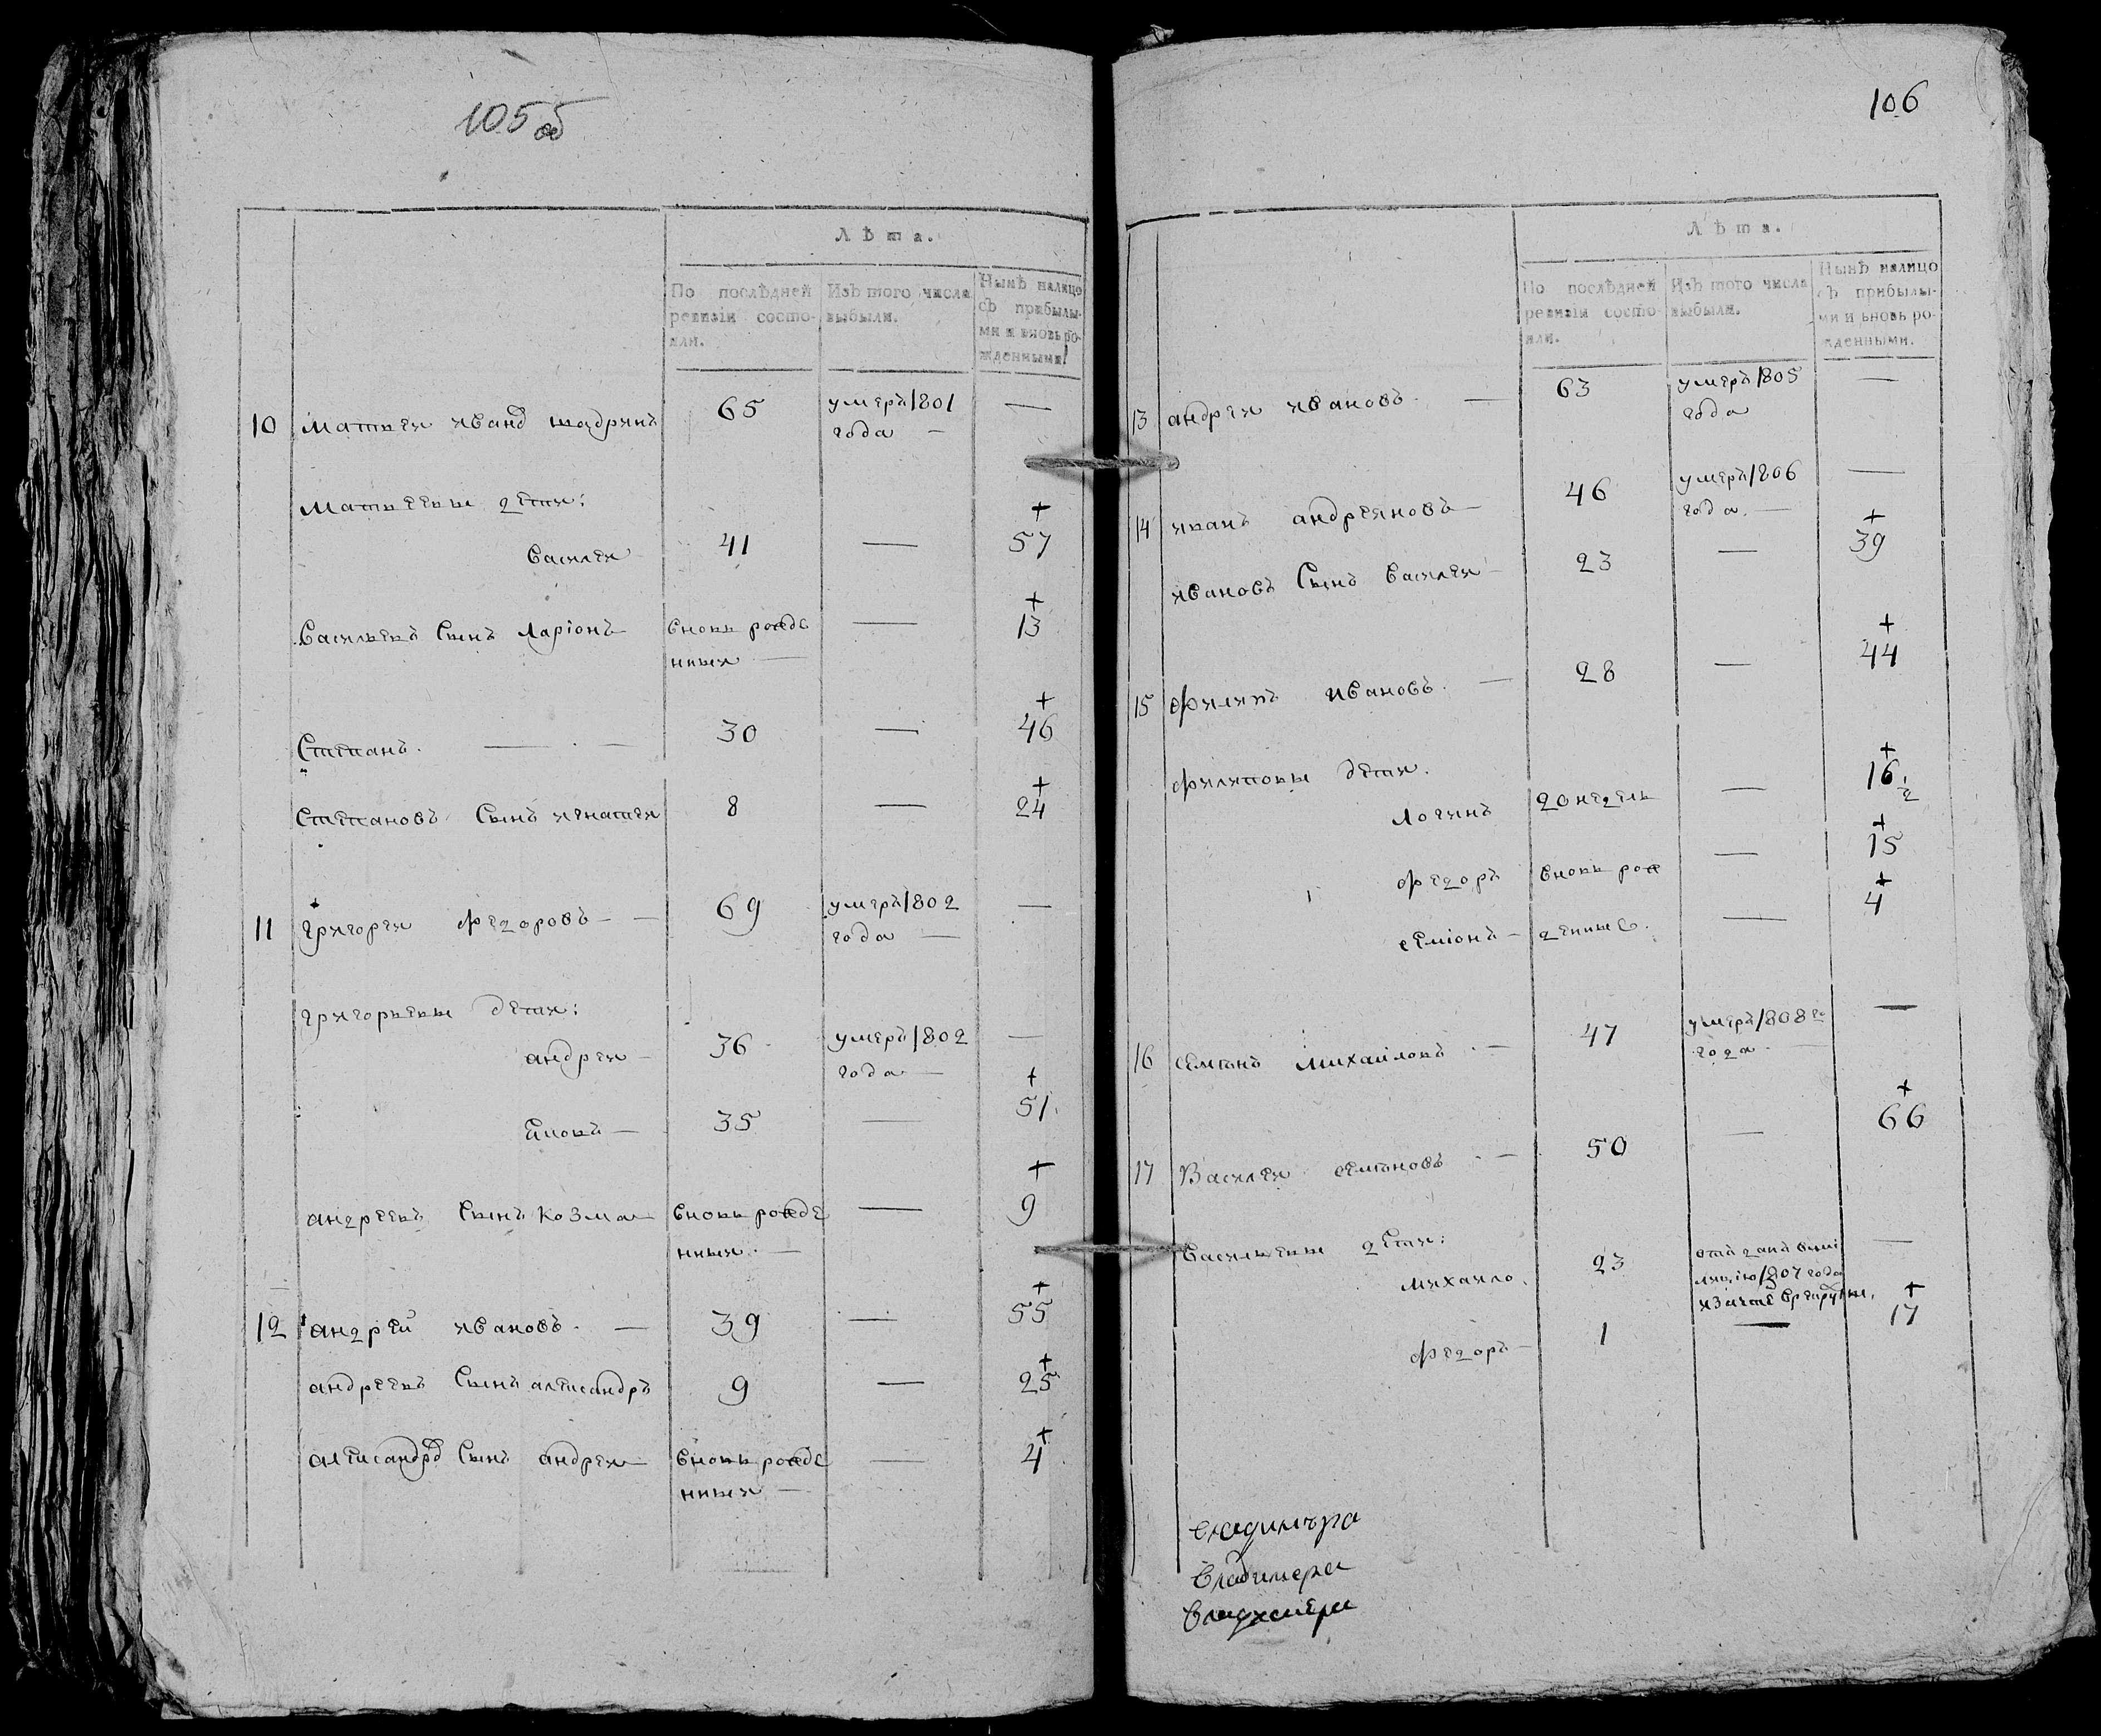 105 об
Лѣта.
По послѣдней ревизіи состояли.
Изъ того числа выбыли.
Нынѣ налицо съ прибылыми и вновь рожденными.
10 Матвеи Иванд шадринъ 65 умеръ 1801 года —
Матвеевы дети:
Василеи 41 — + 57
Васильевъ Сынъ Ларіонъ вновь рожде нныи — + 13
Степанъ. 30 — + 46
Степановъ Сынъ игнатеи 8 — + 24
11 григореи федоровъ — 69 умеръ 1802 года —
григорьевы дети:
андреи — 36 умеръ 1802 года —
— 35 — + 51
андреевъ Сынъ козма вновь рожде нныи. — + 9
12 андрей ивановъ. — 39 — + 55
андреевъ Сынъ александръ 9 — + 25
александрд Сынъ андреи вновь рожде нныи — + 4
106
Лѣта.
По послѣдней ревизіи состояли.
Изъ того числа выбыли.
Нынѣ налицо съ прибылыми и вновь рожденными.
13 андреи ивановъ. — 63 умеръ 1805 года —
14 иванъ андреяновъ — 46 умеръ 1806 года. —
ивановъ Сынъ Василеи — 23 — + 39
15 филипъ ивановъ. — 28 — + 44
филиповы дети.
Логинъ 20 недель — + 16 1/2
федоръ вновь рож — + 15
семіонъ — денные. — + 4
16 семіонъ михаиловъ — 47 умеръ 1808 го года — —
17 Василеи семіоновъ — 50 — + 66
Васильевы дети:
михаило. 23 отъдана вми лицію 1807 года —
федоръ — 1 — + 17
Владимера